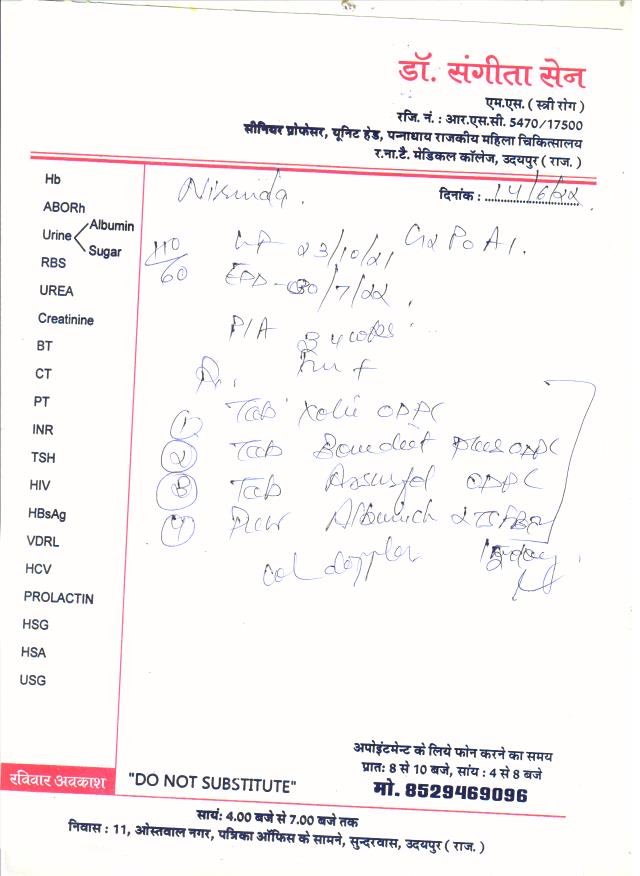 डॉ. संगीता सेन
एम.एस. ( स्त्री रोग )
रजि. नं. : आर.एस.सी. 5470/17500
सीनियर प्रोफेसर, यूनिट हेड, पन्नाधाय राजकीय महिला चिकित्सालय
र.ना.टै. मेडिकल कॉलेज, उदयपुर ( राज. )
दिनांक : 14/6/22
Hb
ABORh
Urine Albumin
Sugar
RBS
UREA
Creatinine
BT
CT
PT
INR
TSH
HIV
HBsAg
VDRL
HCV
PROLACTIN
HSG
HSA
USG
110/60
23/10/21 G2 P0 A1.
EDD - 30/7/22
P/A
① Tab
② Tab Plus
③ Tab
④
col doppler
रविवार अवकाश
"DO NOT SUBSTITUTE"
अपोइंटमेन्ट के लिये फोन करने का समय
प्रातः 8 से 10 बजे, सांय : 4 से 8 बजे
मो. 8529469096
सायं: 4.00 बजे से 7.00 बजे तक
निवास : 11, ओस्तवाल नगर, पत्रिका ऑफिस के सामने, सुन्दरवास, उदयपुर ( राज. )